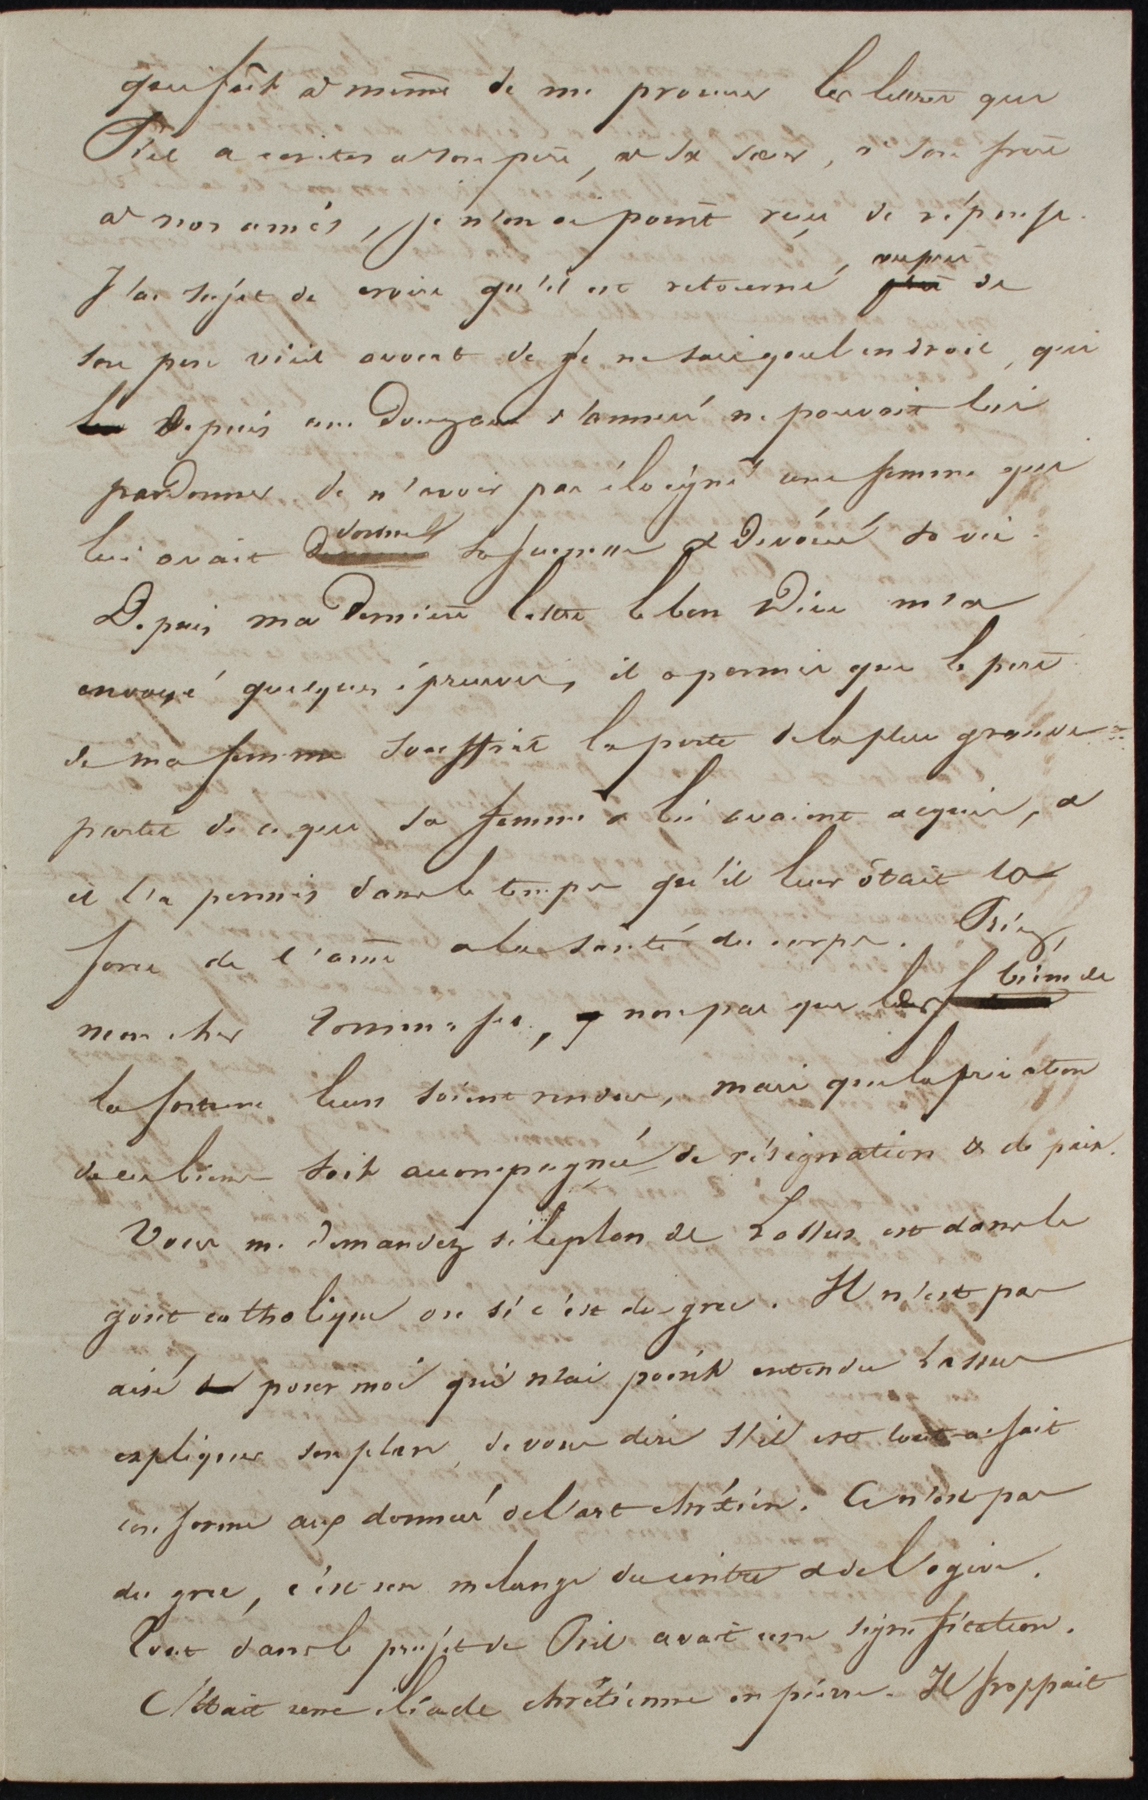 qui fût à même de me procurer les lettres que
Piel a écrites à son père, à sa sœur, à son frère
à nos amis, je n'en ai point reçu de réponse.
J'ai sujet de croire qu'il est retourné auprès de
son père vieil avocat de je ne sais quel endroit, qui
depuis une douzaine d'années ne pouvait lui
pardonner de n'avoir pas éloigné une femme qui
lui avait donné sa jeunesse & dévoué sa vie.
Depuis ma dernière lettre le bon Dieu m'a
envoyé quelques épreuves, il a permis que le père
de ma femme souffrit la perte de la plus grande
partie de ce que sa femme & lui avaient acquis, &
il l'a permis dans le temps qu'il leur ôtait la
force de l'âme & la santé du corps. Priez,
mon cher , non pas que les biens de
la fortune leur soient rendus, mais que la privation
de ces biens soit accompagnée de résignation & de paix.
Vous me demandez si le plan de Lassus est dans le
goût catholique ou si c'est du grec. Il n'est pas
aisé pour moi qui n'ai point entendu Lassus
expliquer son plan, de vous dire s'il est tout à fait
conforme aux données de l'art chrétien. Ce n'est pas
du grec, c'est un mélange du cintre & de l'ogive.
Tout dans le projet de Piel avait une signification.
C'était une iliade chrétienne en pierre. Il frappait